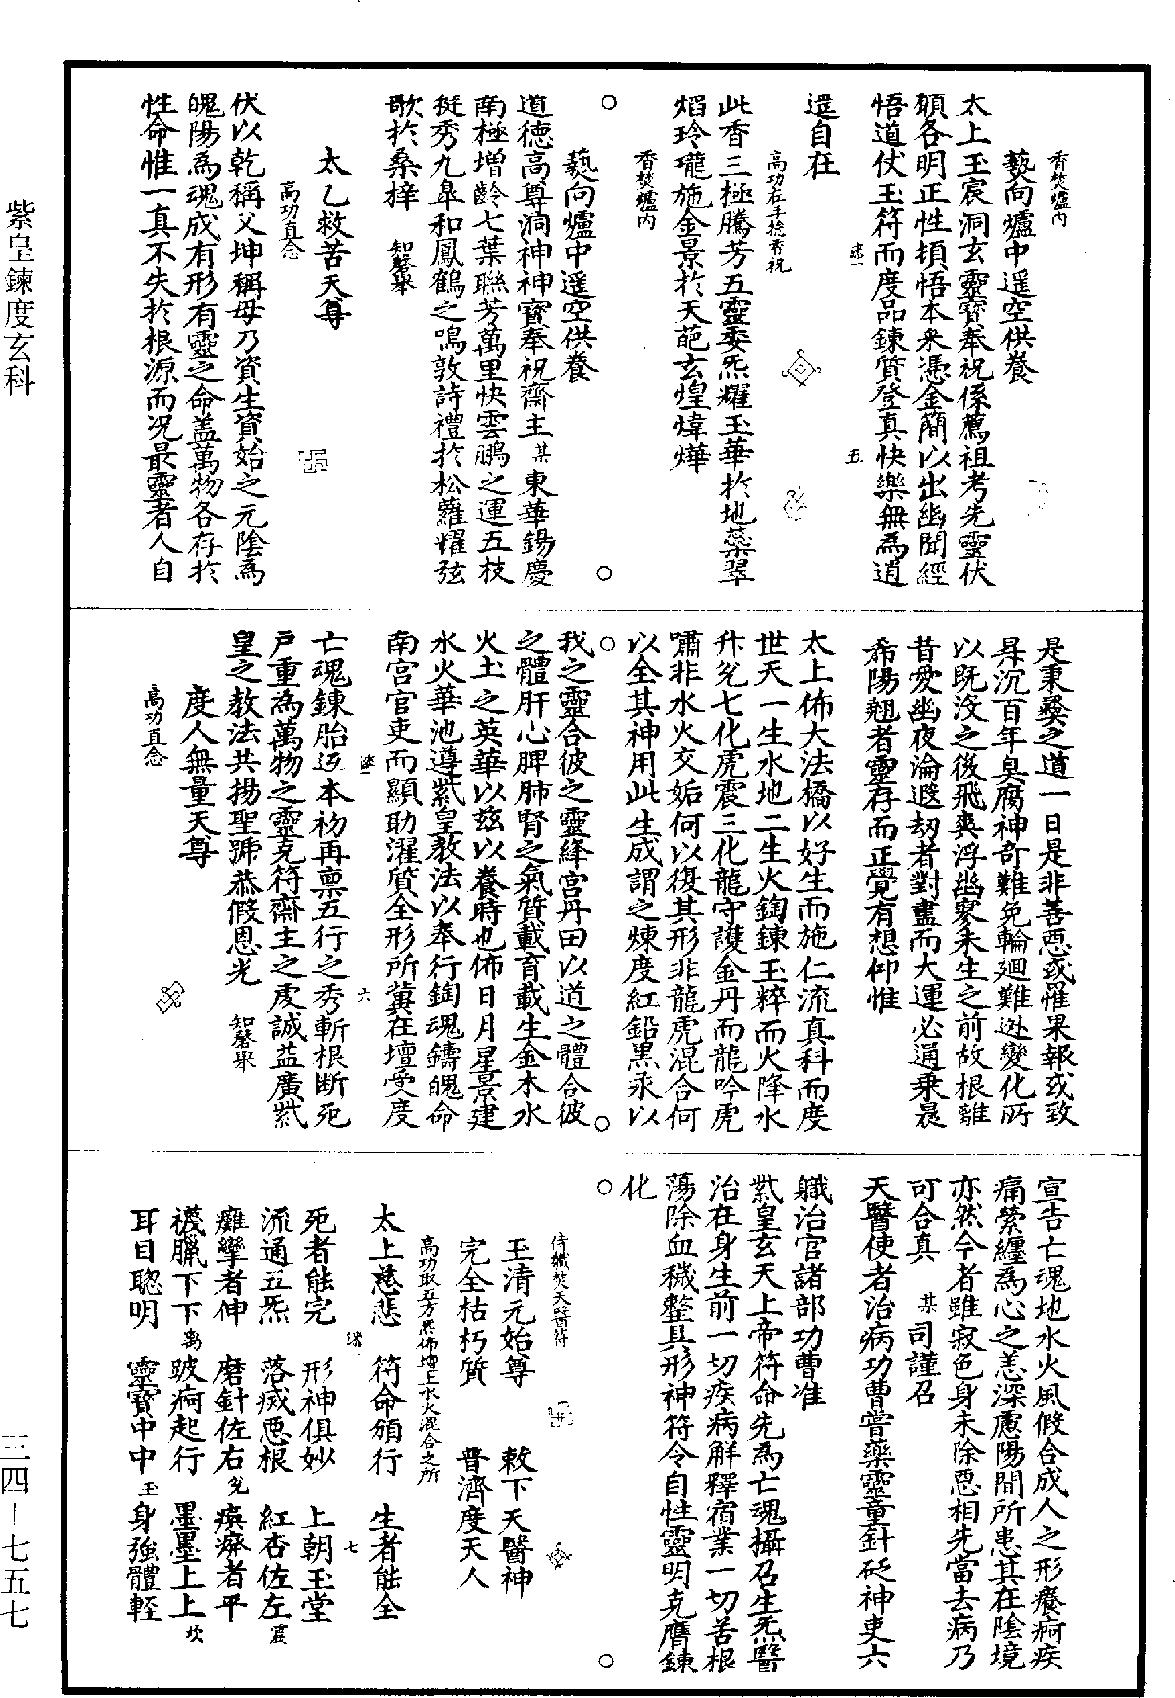 香焚爐內
爇向爐中遥空供養
太上玉宸洞玄靈寶奉祝係薦祖考先靈伏
願各明正性頓悟本來憑金簡以出幽聞經
悟道伏玉符而度品鍊質登真快樂無為逍
遥自在
高功右手捻香祝
此香三極騰芳五靈委炁耀玉華於地蘂翠
焰玲瓏施金景於天葩玄煌煒燁
香焚爐內
爇向爐中遥空供養
道德高尊洞神神寶奉祝齋主某東華錫慶
南極增齡七葉聯芳萬里快雲鵬之運五枝
挺秀九皐和鳳鶴之鳴敦詩禮於松蘿耀弦
歌於桑梓 知磬舉
太乙救苦天尊
高功直念
伏以乾稱父坤稱母乃資生資始之元陰為
魄陽為魂成有形有靈之命盖萬物各存於
性命惟一真不失於根源而况最靈者人自
是秉彜之道一日是非善惡或罹果報或致
昇沉百年臭腐神奇難免輪廻難逃變化所
以既没之後飛爽浮幽寥未生之前故根雖
昔愛幽夜淪遐劫者對盡而大運必通乘晨
希陽翹者靈存而正覺有想仰惟
太上佈大法橋以好生而施仁流真科而度
世天一生水地二生火鍧鍊玉粹而火降水
升兌七化虎震三化龍守護金丹而龍吟虎
嘯非水火交姤何以復其形非龍虎混合何
以全其神用此生成謂之煉度紅鉛黑汞以
我之靈合彼之靈絳宫丹田以道之體合彼
之體肝心脾肺腎之氣質載育載生金木水
火土之英華以兹以養時也佈日月星景建
水火華池遵紫皇教法以奉行鍧魂鑄魄命
南宫官吏而顯助濯質全形所冀在壇受度
亡魂鍊胎返本初再禀五行之秀斬根断死
戶重為萬物之靈克符齋主之虔誠益廣紫
皇之教法共揚聖號恭假恩光 知磬舉
度人無量天尊
高功直念
宣告亡魂地水火風假合成人之形癢痾疾
痛縈纏為心之恙深慮陽間所患其在陰境
亦然今者雖寂色身未除惡相先當去病乃
可合真 某司謹召
天醫使者治病功曹嘗藥靈童針砭神吏六
職治官諸部功曹准
紫皇玄天上帝符命先為亡魂攝召生炁醫
治在身生前一切疾病解釋宿業一切苦根
蕩除血穢整具形神符令自性靈明克膺鍊
化
侍職焚天醫符
玉清元始尊 敕下天醫神
完全枯朽質 普濟度天人
高功取五方炁佈壇上水火混合之所
太上慈悲 符命頒行 生者能全
死者能完 形神俱妙 上朝玉堂
流通五炁 落滅惡根 紅杏佐左震
癱攣者伸 磨針佐右兌 瘼瘵者平
襪臘下下离 跛痾起行 墨墨上上坎
耳目聰明 靈寶中中玉 身強體輕
紫皇鍊度玄科
三四—七五七